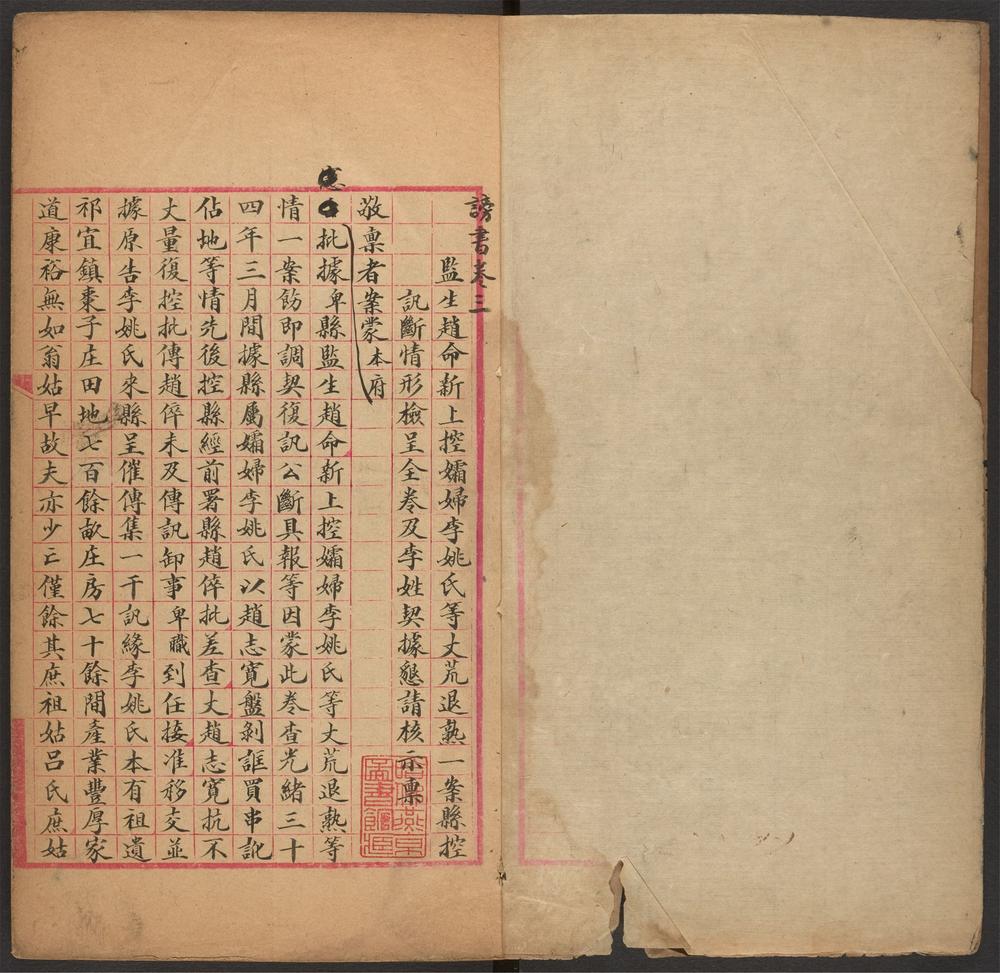 謗書卷三
監生趙命新上控孀婦李姚氏等丈荒退熟一案縣控
訊斷情形檢呈全卷及李姓契據懇請核示稟
敬稟者案蒙本府
憲批據卑縣監生趙命新上控孀婦李姚氏等丈荒退熟等
情一案飭即調契復訊公斷具報等因蒙此卷查光緒三十
四年三月間據縣屬孀婦李姚氏以趙志寬盤剝誆買串訛
佔地等情先後控縣經前署縣趙倅批差查丈趙志寬抗不
丈量復控批傳趙倅未及傳訊卸事卑職到任接准移交並
據原告李姚氏來縣呈催傳集一干訊緣李姚氏本有祖遺
祁宜鎮棗子庄田地七百餘畝庄房七十餘間產業豐厚家
道康裕無如翁姑早故夫亦少亡僅餘其庶祖姑呂氏庶姑
哈佛燕京
圖書館